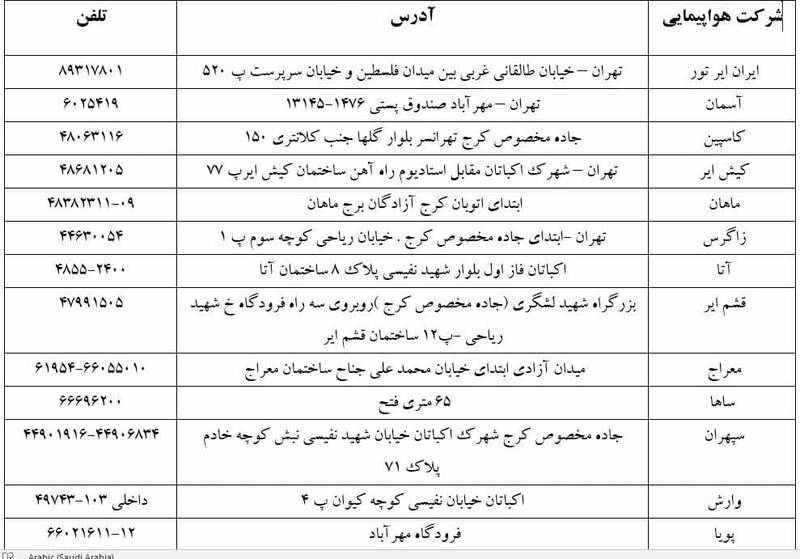 شرکت هواپیمایی آدرس تلفن
ایران ایر تور تهران – خیابان طالقانی غربی بین میدان فلسطین و خیابان سرپرست پ ۵۲۰ ۸۹۳۱۷۸۰۱
آسمان تهران – مهرآباد صندوق پستی ۱۴۷۶-۱۳۱۴۵ ۶۰۲۵۴۱۹
کاسپین جاده مخصوص کرج تهرانسر بلوار گلها جنب کلانتری ۱۵۰ ۴۸۰۶۳۱۱۶
کیش ایر تهران – شهرک اکباتان مقابل استادیوم راه آهن ساختمان کیش ایرپ ۷۷ ۴۸۶۸۱۲۰۵
ماهان ابتدای اتوبان کرج آزادگان برج ماهان ۰۹-۴۸۳۸۲۳۱۱
زاگرس تهران –ابتدای جاده مخصوص کرج . خیابان ریاحی کوچه سوم پ ۱ ۴۴۶۳۰۰۵۴
آتا اکباتان فاز اول بلوار شهید نفیسی پلاک ۸ ساختمان آتا ۲۴۰۰-۴۸۵۵
قشم ایر بزرگراه شهید لشگری (جاده مخصوص کرج )روبروی سه راه فرودگاه خ شهید ۴۷۹۹۱۵۰۵
ریاحی –پ۱۲ ساختمان قشم ایر
معراج میدان آزادی ابتدای خیابان محمد علی جناح ساختمان معراج ۶۶۰۵۵۰۱۰-۶۱۹۵۴
ساها ۶۵ متری فتح ۶۶۶۹۶۲۰۰
سپهران جاده مخصوص کرج شهرک اکباتان خیابان شهید نفیسی نبش کوچه خادم ۴۴۹۰۶۸۳۴-۴۴۹۰۱۹۱۶
پلاک ۷۱
وارش اکباتان خیابان نفیسی کوچه کیوان پ ۴ داخلی ۱۰۳-۴۹۷۴۳
پویا فرودگاه مهرآباد ۱۲-۶۶۰۲۱۶۱۱
Arabic (Saudi Arabia)